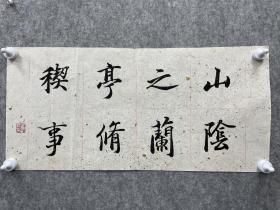 山陰
之蘭
亭脩
稧事